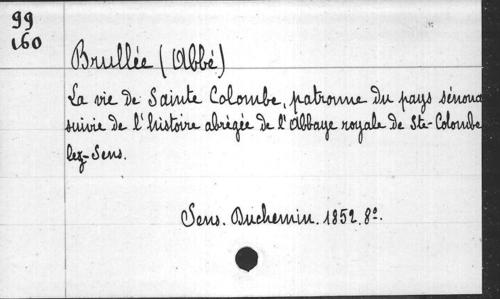 99
160
Brullée (Abbé)
La vie de Sainte Colombe, patronne du pays sénona
suivie de l'histoire abrégée de l'abbaye royale de Ste-Colombe
lez-Sens.
Sens. Duchemin. 1852. 8º.